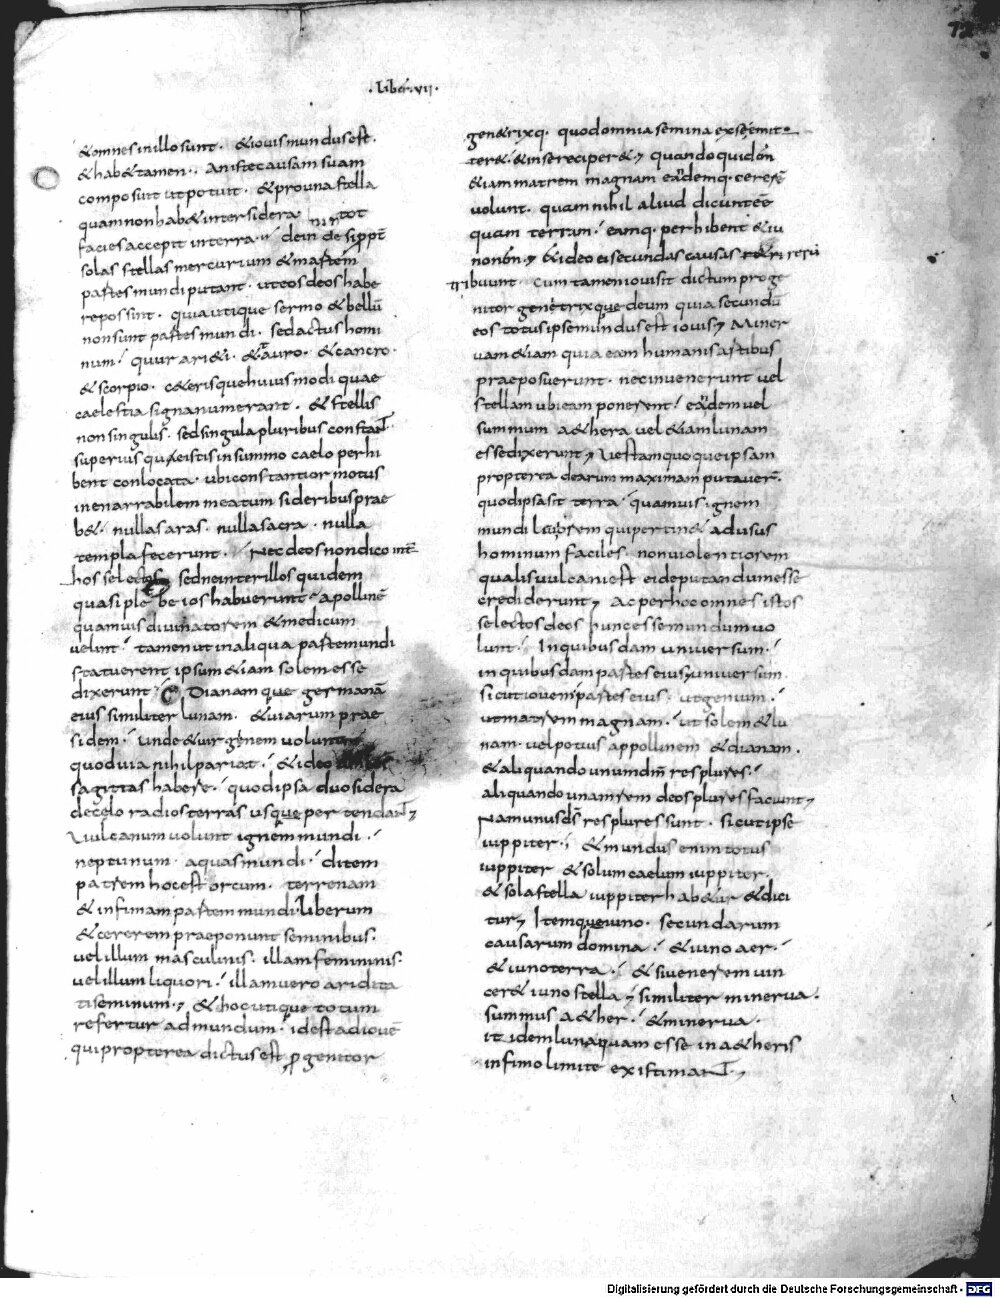 72
· Liber · vii ·
& omnes in illo sunt · & iouis mundus est ·
& hab& tamen · An iste causam suam
composuit ut potuit · & pro una stella
quam non hab& inter sidera tot
facies accepit in terra · dein de si ppt̄
solas stellas mercurium & martem
partes mundi putant · ut eos deos habe
re possint · quia utique sermo & bellū
non sunt partes mundi · sed actus homi
num · quur ari&i · & tauro · & cancro ·
& scorpio · c&erisque huius modi quae
caelestia signa numerant · & stellis
non singulis · sed singula pluribus constaNT
superius quae istis in summo caelo perhi
bent conlocata · ubi constantior motus
inenarrabilem meatum sideribus prae
b& · nullas aras · nulla sacra · nulla
templa fecerunt · Nec deos non dico int̄
hos selectos sed ne inter illos quidem
quasi plebeios habuerunt · apollinē
quamuis diuinatorem & medicum
uelint · tamen ut in aliqua parte mundi
statuerent ipsum &iam solem esse
dixerunt · Dianamque germanā
eius similiter lunam · & uiarum prae
sidem · unde & uirginem uolunt
quod uia nihil pariat · & ideo
sagittas habere · quod ipsa duo sidera
de celo radios terras usque pertendaNT
Uulcanum uolunt ignem mundi ·
neptunum · aquas mundi · ditem
patrem hoc est orcum · terrenam
& infimam partem mundi · liberum
& cererem praeponunt seminibus ·
uel illum masculinis · illam femininis ·
uel illum liquori · illam uero aridita
ti seminum · & hoc utique totum
refertur ad mundum · id est ad iouē
qui propterea dictus est pgenitor
gen&rixq · quod omnia semina ex se emit
ter& & in se reciper& quando quidē
&iam matrem magnam eādemq · cererē
uolunt · quam nihil aliud dicunt eē
quam terram · eamq · perhibent & iu
nonēm & ideo ei secundas causas rerū
tribuunt cum tamen ioui sit dictum proge
nitor genetrixque deum quia secundū
eos totus ipse mundus est iouis Miner
uam &iam quia eam humanis artibus
praeposuerunt · nec inuenerunt uel
stellam ubi eam ponerent · eādem uel
summum a&hera uel &iam lunam
esse dixerunt Uestam quoque ipsam
propterea dearum maximam putauer̄ ·
quod ipsa sit terra · quamuis ignem
mundi leuiorem qui pertin& ad usus
hominum faciles · non uiolentiorem
qualis uulcani est ei deputandum esse
crediderunt Ac per hoc omnes istos
selectos deos hunc esse mundum uo
lunt · In quibusdam uniuersum ·
in quibusdam partes eius uniuersum
sicut iouem partes eius · ut genium ·
ut matrem magnam · ut solem & lu
nam · uel potius appollinem & dianam ·
& aliquando unum dm̄ res plures ·
aliquando unam rem deos plures faciunt
Nam unus ds̄ res plures sunt · sicut ipse
iuppiter · & mundus enim totus
iuppiter & solum caelum iuppiter ·
& sola stella iuppiter hab&ur & dici
tur Itemque iuno · secundarum
causarum domina · & iuno aer ·
& iuno terra · & si uenerem uin
cer& iuno stella similiter minerua ·
summus a&her · & minerua ·
itidem luna quam esse in a&heris
infimo limite existimaNT
Digitalisierung gefördert durch die Deutsche Forschungsgemeinschaft - DFG